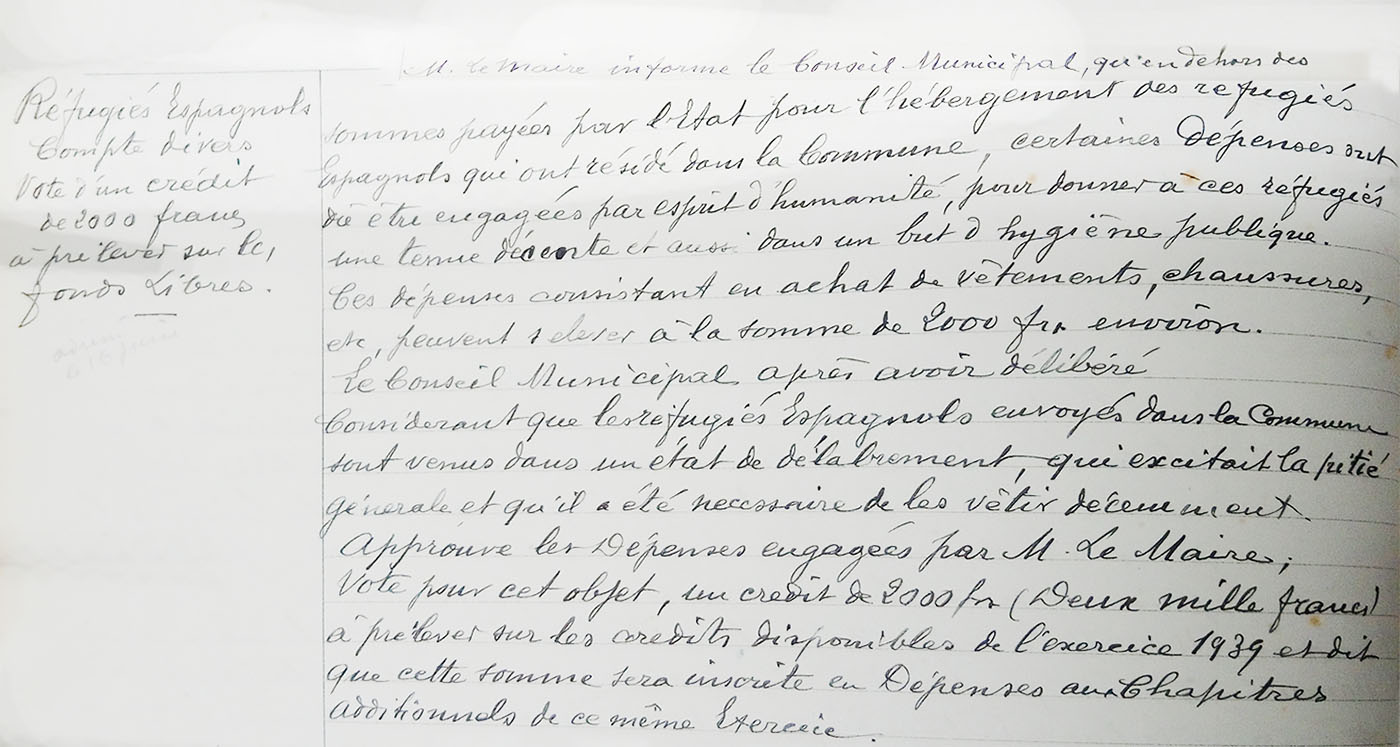 Réfugiés Espagnols
Compte divers
Vote d'un crédit
de 2000 francs
à prélever sur les
fonds Libres.
M. Le Maire informe le Conseil Municipal, qu'en dehors des
sommes payées par l'Etat pour l'hébergement des refugiés
Espagnols qui ont résidé dans la Commune, certaines Dépenses ont
dû être engagées par esprit d'humanité, pour donner à ces réfugiés
une tenue décente et aussi dans un but d'hygiène publique.
Ces dépenses consistant en achat de vêtements, chaussures,
etc, peuvent s'elever à la somme de 2000 frs environ.
Le Conseil Municipal après avoir délibéré
Considerant que les réfugiés Espagnols envoyés dans la Commune
sont venus dans un état de délabrement, qui excitait la pitié
générale et qu'il a été necessaire de les vêtir décemment.
Approuve les Dépenses engagées par M. Le Maire;
Vote pour cet objet, un credit de 2000 frs (Deux mille francs)
à prélever sur les credits disponibles de l'exercice 1939 et dit
que cette somme sera inscrite en Dépenses aux Chapitres
additionnels de ce même Exercice.